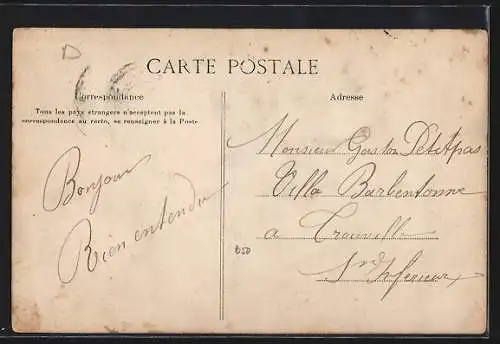 D
CARTE POSTALE
Correspondance
Tous les pays étrangers n'acceptent pas la
correspondance au recto, se renseigner à la Poste
Bonjour
Bien entendu
Adresse
Monsieur Gaston Petitpas
Villa Barbentonne
a Trouville
Sne Inferieur